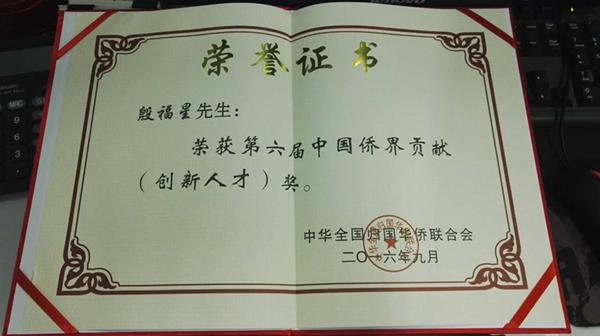 荣誉证书
殷福星先生：
荣获第六届中国侨界贡献
（创新人才）奖。
中华全国归国华侨联合会
二〇一六年九月